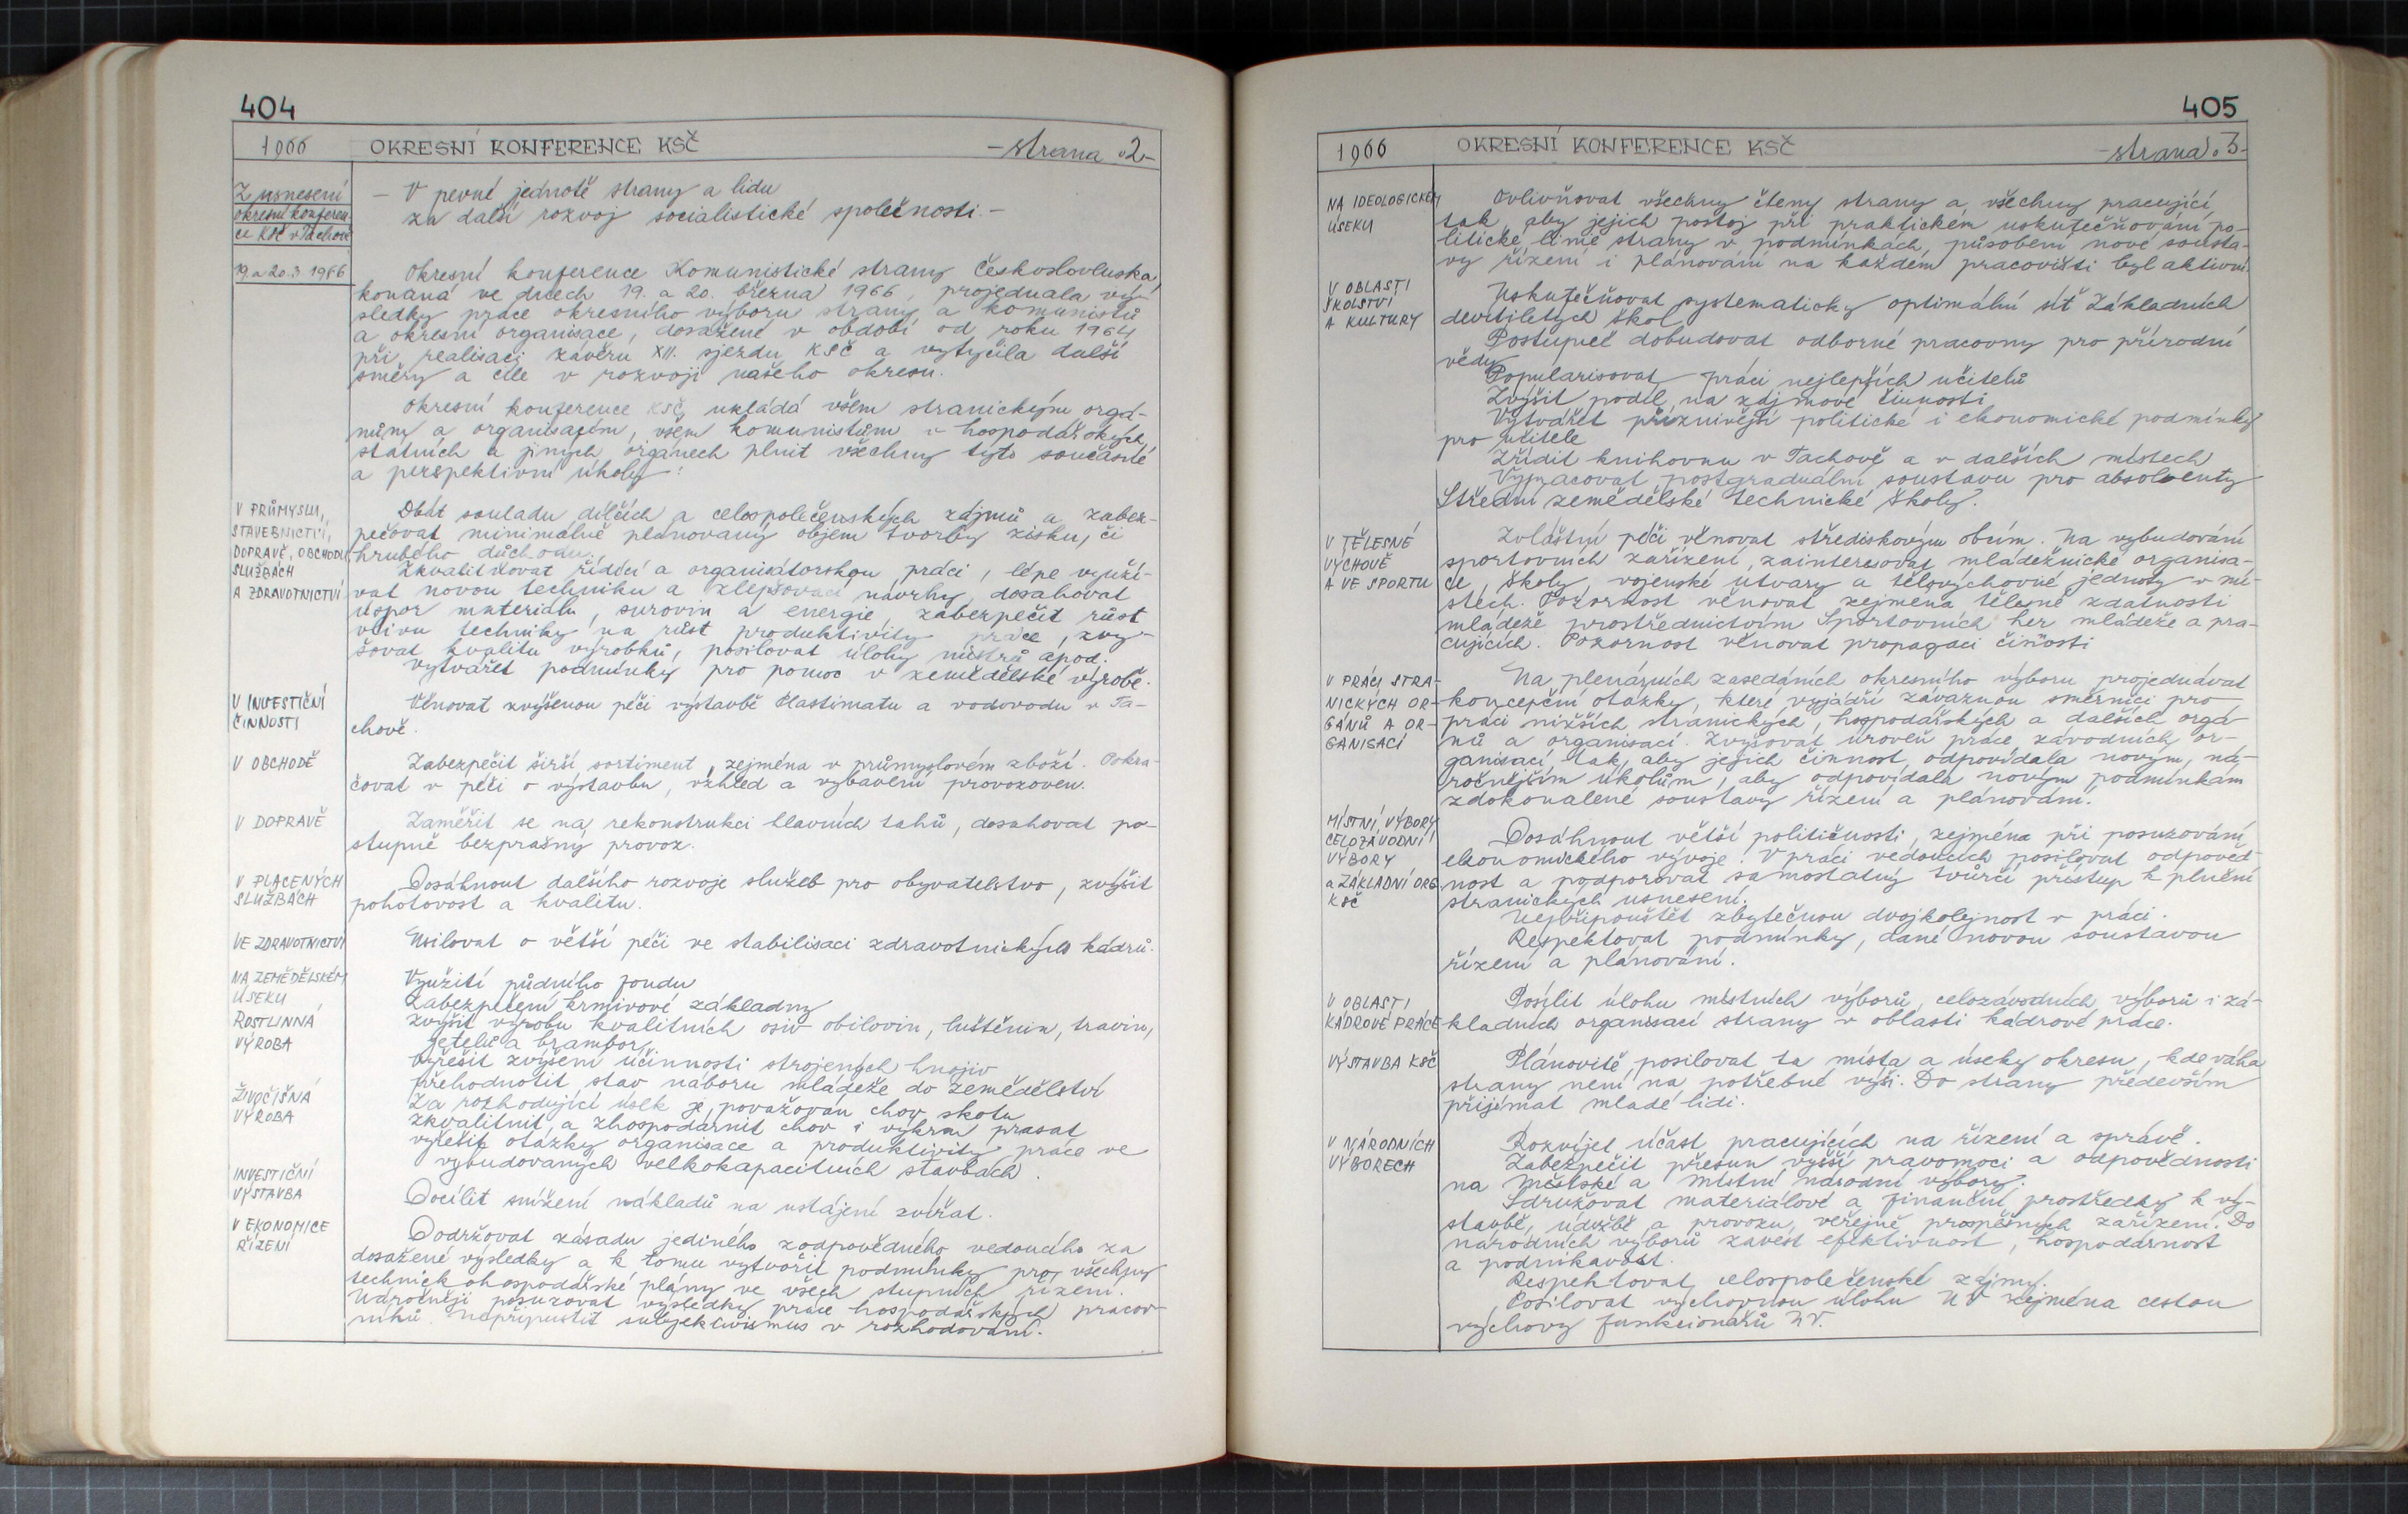 404
1966 OKRESNÍ KONFERENCE KSČ -strana 2-
Z usnesení
okresní konferen
ce KSČ v Tachově
19. a 20. 3. 1966
- V pevné jednotě strany a lidu
za další rozvoj socialistické společnosti. -
Okresní konference Komunistické strany Československa,
konaná ve dnech 19. a 20. března 1966, projednala vý-
sledky práce okresního výboru strany a komunistů
a okresní organisace, dosažené v období od roku 1964
při realisaci závěru XII. sjezdu KSČ a vytyčila další
směry a cíle v rozvoji našeho okresu.
Okresní konference KSČ ukládá všem stranickým orgá-
nům a organisacím, všem komunistům v hospodářských,
státních a jiných orgánech plnit všechny tyto současné
a perspektivní úkoly:
V PRŮMYSLU,
STAVEBNICTVÍ,
DOPRAVĚ, OBCHODU
SLUŽBÁCH
A ZDRAVOTNICTVÍ
Dbát souladu dílčích a celospolečenských zájmů a zabez-
pečovat minimálně plánovaný objem tvorby zisku, či
hrubého důchodu.
Zkvalitňovat řídící a organisátorskou práci, lépe využí-
vat novou techniku a zlepšovací návrhy, dosahovat
úspor materiálu, surovin a energie, zabezpečit růst
vlivu techniky na růst produktivity práce, zvy-
šovat kvalitu výrobků, posilovat úlohy mistrů apod.
Vytvářet podmínky pro pomoc v zemědělské výrobě.
V INVESTIČNÍ
ČINNOSTI
Věnovat zvýšenou péči výstavbě Plastimatu a vodovodu v Ta-
chově.
V OBCHODĚ
Zabezpečit širší sortiment, zejména v průmyslovém zboží. Pokra-
čovat v péči o výstavbu, vzhled a vybavení provozoven.
V DOPRAVĚ
Zaměřit se na rekonstrukci hlavních tahů, dosahovat po-
stupně bezprašný provoz.
V PLACENÝCH
SLUŽBÁCH
Dosáhnout dalšího rozvoje služeb pro obyvatelstvo, zvýšit
pohotovost a kvalitu.
VE ZDRAVOTNICTVÍ
Usilovat o větší péči ve stabilisaci zdravotnických kádrů.
NA ZEMĚDĚLSKÉM
ÚSEKU,
ROSTLINNÁ
VÝROBA
Využití půdního fondu
Zabezpečení krmivové základny
Zvýšit výrobu kvalitních osiv obilovin, luštěnin, travin,
jetelů a brambor.
Vyřešit zvýšení účinnosti strojených hnojiv
Přehodnotit stav náboru mládeže do zemědělství
ŽIVOČIŠNÁ
VÝROBA
Za rozhodující úsek je považován chov skotu
Zkvalitnit a zhospodárnit chov i výkrm prasat
Vyřešit otázky organisace a produktivity práce ve
vybudovaných velkokapacitních stavbách.
INVESTIČNÍ
VÝSTAVBA
Docílit snížení nákladů na ustájení zvířat.
V EKONOMICE
ŘÍZENÍ
Dodržovat zásadu jediného zodpovědného vedoucího za
dosažené výsledky a k tomu vytvořit podmínky pro všechny
technickohospodářské plány ve všech stupních řízení.
Náročněji posuzovat výsledky práce hospodářských pracov-
níků. Nepřipustit subjektivismus v rozhodování.
405
1966 OKRESNÍ KONFERENCE KSČ -strana 3-
NA IDEOLOGICKÉM
ÚSEKU
Ovlivňovat všechny členy strany a všechny pracující
tak, aby jejich postoj při praktickém uskutečňování po-
litické linie strany v podmínkách působení nové sousta-
vy řízení i plánování na každém pracovišti byl aktivní
V OBLASTI
ŠKOLSTVÍ
A KULTURY
Uskutečňovat systematicky optimální síť základních
devítiletých škol
Postupně dobudovat odborné pracovny pro přírodní
vědy
Popularisovat práci nejlepších učitelů
Zvýšit podíl na zájmové činnosti
Vytvářet příznivější politické i ekonomické podmínky
pro učitele
Zřídit knihovnu v Tachově a v dalších místech
Vypracovat postgraduální soustavu pro absolventy
Střední zemědělské technické školy.
V TĚLESNÉ
VÝCHOVĚ
A VE SPORTU
Zvláštní péči věnovat střediskovým obcím. Na vybudování
sportovních zařízení zainteresovat mládežnické organisa-
ce, školy, vojenské útvary a tělovýchovné jednoty v mí-
stech. Pozornost věnovat zejména tělesné zdatnosti
mládeže prostřednictvím Sportovních her mládeže a pra-
cujících. Pozornost věnovat propagaci činnosti
V PRÁCI STRA-
NICKÝCH OR-
GÁNŮ A OR-
GANISACÍ
Na plenárních zasedáních okresního výboru projednávat
koncepční otázky, které vyjádří závaznou směrnici pro
práci nižších stranických, hospodářských a dalších orgá-
nů a organisací. Zvyšovat úroveň práce závodních or-
ganisací tak, aby jejich činnost odpovídala novým, ná-
ročnějším úkolům, aby odpovídala novým podmínkám
zdokonalené soustavy řízení a plánování.
MÍSTNÍ VÝBORY
CELOZÁVODNÍ
VÝBORY
a ZÁKLADNÍ ORG.
KSČ
Dosáhnout větší političnosti, zejména při posuzování
ekonomického vývoje. V práci vedoucích posilovat odpověd-
nost a podporovat samostatný tvůrčí přístup k plnění
stranických usnesení.
Nepřipouštět zbytečnou dvojkolejnost v práci.
Respektovat podmínky, dané novou soustavou
řízení a plánování.
V OBLASTI
KÁDROVÉ PRÁCE
Posílit úlohu místních výborů, celozávodních výborů i zá-
kladních organisací strany v oblasti kádrové práce.
VÝSTAVBA KSČ
Plánovitě posilovat ta místa a úseky okresu, kde váha
strany není na potřebné výši. Do strany především
přijímat mladé lidi.
V NÁRODNÍCH
VÝBORECH
Rozvíjet účast pracujících na řízení a správě.
Zabezpečit přesun vyšší pravomoci a odpovědnosti
na městské a místní národní výbory.
Sdružovat materiálové a finanční prostředky k vý-
stavbě, údržbě a provozu veřejně prospěšných zařízení. Do
národních výborů zavést efektivnost, hospodárnost
a podnikavost.
Respektovat celospolečenské zájmy.
Posilovat výchovnou úlohu NV zejména cestou
výchovy funkcionářů NV.